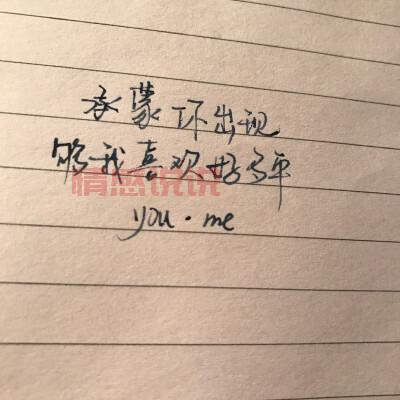 承蒙你出现
够我喜欢好多年
情感说说
you·me